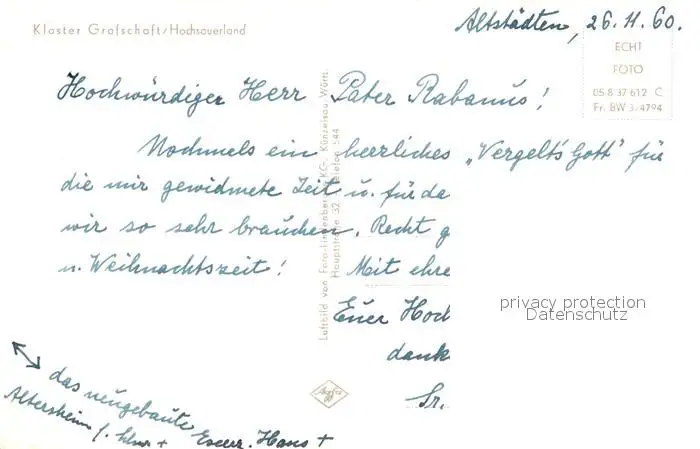 Kloster Grafschaft/Hochsauerland
Altstädten, 26.11.60.
ECHT
FOTO
05 8 37 612 C
Fr. BW 3.4794
Hochwürdiger Herr Pater Rabanus!
Nochmals ein herrliches „Vergelt's Gott" für
die mir gewidmete Zeit u. für da
wir so sehr brauchen. Recht g
u. Weihnachtszeit! Mit ehre
Euer Hoch
dank
Sr.
Luftbild von Foto- KG- Künzelsau Württ.
Hauptstraße 32 Telefon 544
privacy protection
Datenschutz
das neugebaute
Altersheim f. + Haus +